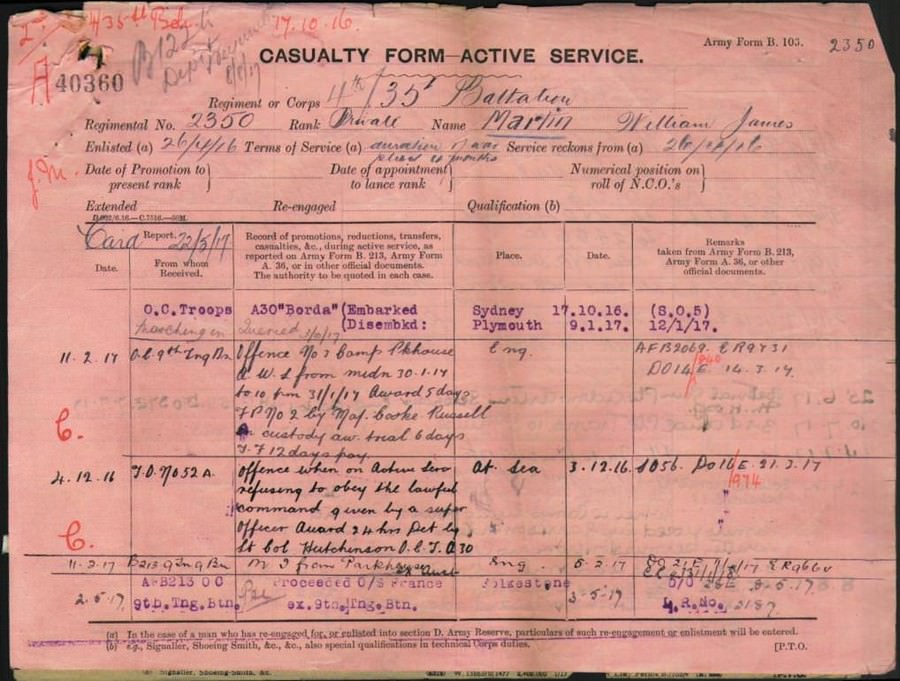 17.10.16
CASUALTY FORM-ACTIVE SERVICE.
Army Form B. 103.
2350
40360
Regiment or Corps 4th/35th Battalion
Regimental No. 2350 Rank Private Name Martin William James
Enlisted (a) 26/4/16 Terms of Service (a) duration of war Service reckons from (a) 26/4/16
plus 4 months
Date of Promotion to present rank
Date of appointment to lance rank
Numerical position on roll of N.C.O.'s
Extended Re-engaged Qualification (b)
Card 22/5/17
Report.
Date.
From whom Received.
Record of promotions, reductions, transfers, casualties, &c., during active service, as reported on Army Form B. 213, Army Form A. 36, or in other official documents. The authority to be quoted in each case.
Place.
Date.
Remarks taken from Army Form B. 213, Army Form A. 36, or other official documents.
O.C.Troops A30"Borda" (Embarked Sydney 17.10.16. (S.O.5)
Marching in Queried (Disembkd: Plymouth 9.1.17. 12/1/17.
11.2.17 O.C. 9th Tng Bn Offence No 3 Camp Pkhouse Eng. AFB2069. ER9731
A.W.L from midn 30.1.17 DO14/E 14.3.17
to 10 pm 31/1/17 Award 5 days
F P No 2 by Maj. Cooke Russell
custody aw. trial 6 days
T.F 12 days pay.
C.
4.12.16 offence when on Active Serv At Sea 3.12.16. DO16/E 21.3.17
refusing to obey the lawful
command given by a super
Officer Award 24 hrs Det by
Lt Col Hutchinson O.C.T. A30
C.
11.2.17 B213 9 Tng Bn M I from Parkhouse Eng. 5.2.17
2.5.17 AFB213 OC Proceeded O/S France Folkestone 3-5-17
9th.Tng.Btn. ex.9th.Tng.Btn. L.R.No. 2187
(a) In the case of a man who has re-engaged for, or enlisted into section D. Army Reserve, particulars of such re-engagement or enlistment will be entered.
(b) e.g., Signaller, Shoeing Smith, &c., &c., also special qualifications in technical Corps duties.
[P.T.O.